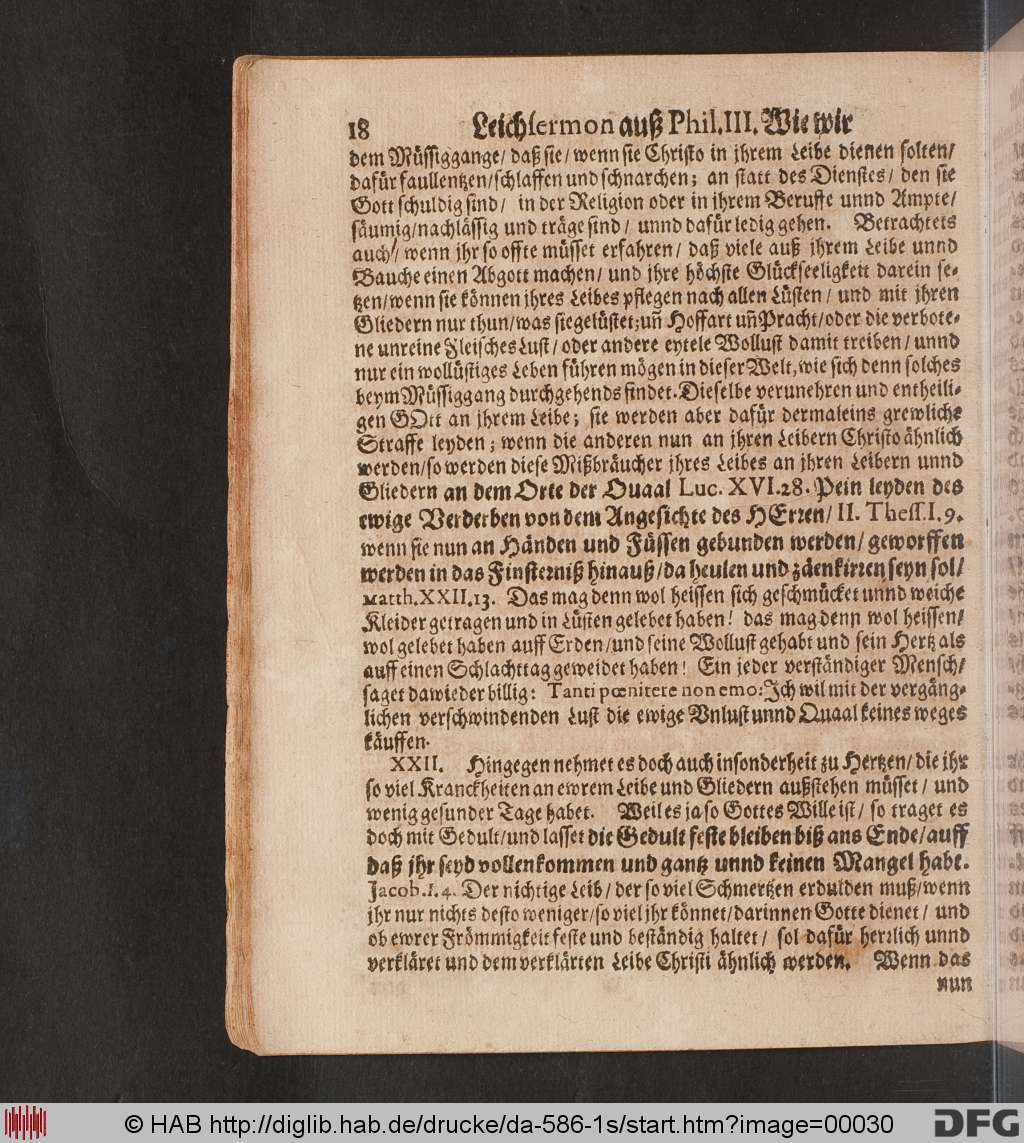 18 Leichsermon auß Phil. III. Wie wir
dem Müssiggange/ daß sie/ wenn sie Christo in jhrem Leibe dienen solten/
dafür faullentzen/ schlaffen und schnarchen; an statt des Dienstes/ den sie
Gott schuldig sind/ in der Religion oder in jhrem Beruffe unnd Ampte/
säumig/ nachlässig und träge sind/ unnd dafür ledig gehen. Betrachtets
auch/ wenn jhr so offte müsset erfahren/ daß viele auß jhrem Leibe unnd
Bauche einen Abgott machen/ und jhre höchste Glückseeligkeit darein se-
tzen/ wenn sie können jhres Leibes pflegen nach allen Lüsten/ und mit jhren
Gliedern nur thun/ was sie gelüstet; uñ Hoffart uñ Pracht/ oder die verbote-
ne unreine Fleisches Lust/ oder andere eytele Wollust damit treiben/ unnd
nur ein wollüstiges Leben führen mögen in dieser Welt, wie sich denn solches
beym Müssiggang durchgehends findet. Dieselbe verunehren und entheili-
gen GOtt an jhrem Leibe; sie werden aber dafür dermaleins grewliche
Straffe leyden; wenn die anderen nun an jhren Leibern Christo ähnlich
werden/ so werden diese Mißbräucher jhres Leibes an jhren Leibern unnd
Gliedern an dem Orte der Quaal Luc. XVI. 28. Pein leyden des
ewige Verderben von dem Angesichte des HErren/ II. Thess. I. 9.
wenn sie nun an Händen und Füssen gebunden werden/ geworffen
werden in das Finsterniß hinauß/ da heulen und zäenkirren seyn sol/
Matth. XXII. 13. Das mag denn wol heissen sich geschmücket unnd weiche
Kleider getragen und in Lüsten gelebet haben! das mag denn wol heissen/
wol gelebet haben auff Erden/ und seine Wollust gehabt und sein Hertz als
auff einen Schlachttag geweidet haben! Ein jeder verständiger Mensch/
saget dawieder billig: Tanti pœnitere non emo: Ich wil mit der vergäng-
lichen verschwindenden Lust die ewige Vnlust unnd Quaal keines weges
käuffen.
XXII. Hingegen nehmet es doch auch insonderheit zu Hertzen/ die jhr
so viel Kranckheiten an ewrem Leibe und Gliedern außstehen müsset/ und
wenig gesunder Tage habet. Weil es ja so Gottes Wille ist/ so traget es
doch mit Gedult/ und lasset die Gedult feste bleiben biß ans Ende/ auff
daß jhr seyd vollenkommen und gantz unnd keinen Mangel habt.
Jacob. I. 4. Der nichtige Leib/ der so viel Schmertzen erdulden muß/ wenn
jhr nur nichts desto weniger/ so viel jhr könnet/ darinnen Gotte dienet/ und
ob ewrer Frömmigkeit feste und beständig haltet/ sol dafür herrlich unnd
verkläret und dem verklärten Leibe Christi ähnlich werden. Wenn das
nun
© HAB http://diglib.hab.de/drucke/da-586-1s/start.htm?image=00030
DFG